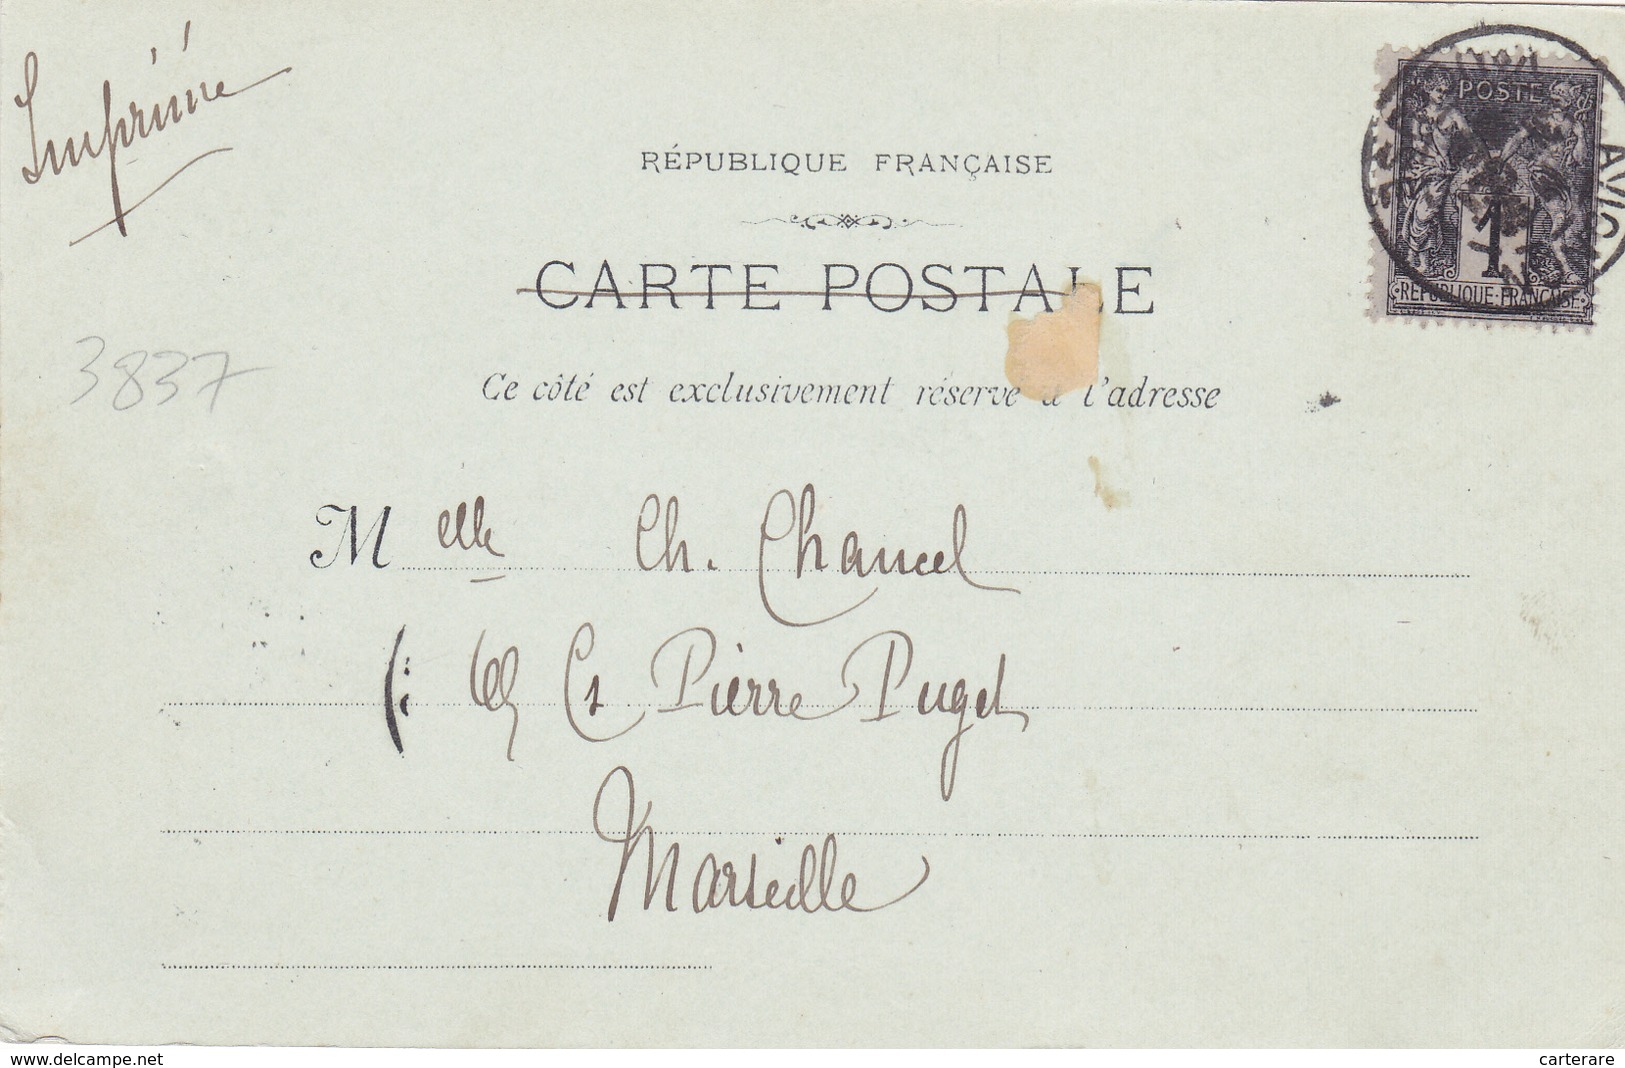 Imprimé
POSTE
1
REPUBLIQUE FRANÇAISE
AVIG
RÉPUBLIQUE FRANÇAISE
CARTE POSTALE
3837
Ce côté est exclusivement réservé à l'adresse
Melle Ch. Chancel
Cs Pierre Puget
Marseille
www.delcampe.net
carterare